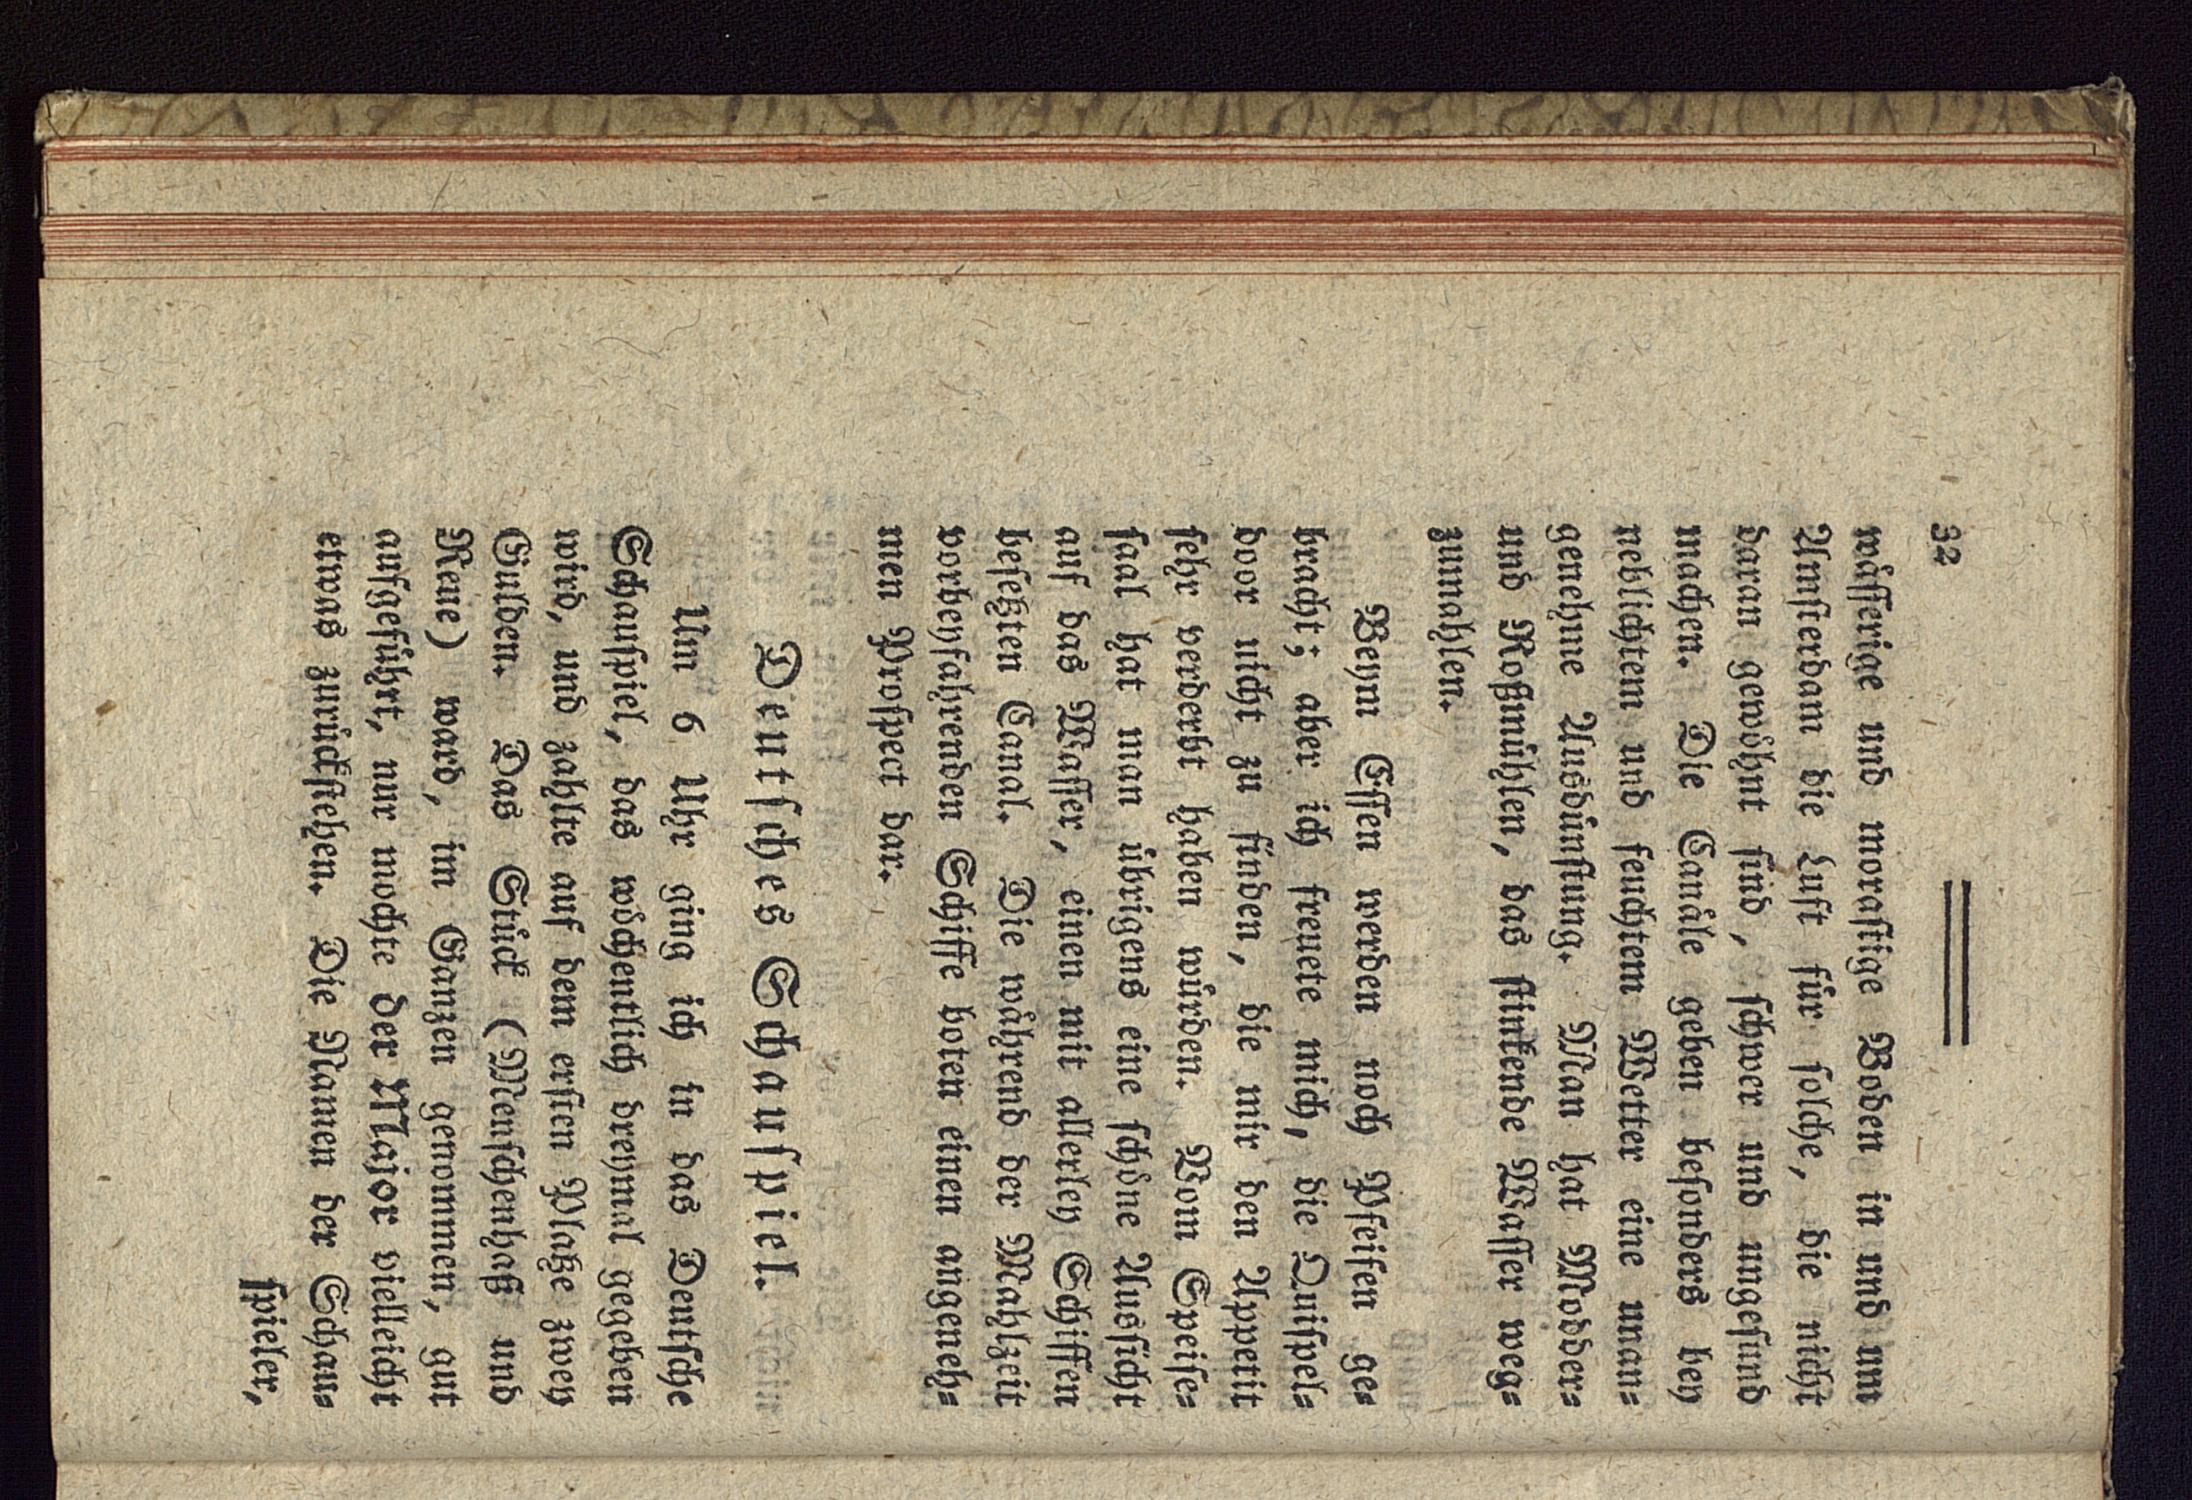 32
wäſſerige und moraſtige Boden in und um
Amſterdam die Luft für ſolche, die nicht
daran gewöhnt ſind, ſchwer und ungeſund
machen. Die Canäle geben beſonders bey
neblichtem und feuchtem Wetter eine unan⸗
genehme Ausdünſtung. Man hat Modder⸗
und Roßmühlen, das ſtinkende Waſſer weg⸗
zumahlen.
Beym Eſſen werden noch Pfeifen ge⸗
bracht; aber ich freuete mich, die Quiſpel⸗
door nicht zu finden, die mir den Appetit
ſehr verderbt haben würden. Vom Speiſe⸗
ſaal hat man übrigens eine ſchöne Ausſicht
auf das Waſſer, einen mit allerley Schiffen
beſetzten Canal. Die während der Mahlzeit
vorbeyfahrenden Schiffe boten einen angeneh⸗
men Proſpect dar.
Deutſches Schauſpiel.
Um 6 Uhr ging ich in das Deutſche
Schauſpiel, das wöchentlich dreymal gegeben
wird, und zahlte auf dem erſten Platze zwey
Gulden. Das Stück (Menſchenhaß und
Reue) ward, im Ganzen genommen, gut
aufgeführt, nur mochte der Major vielleicht
etwas zurückſtehen. Die Namen der Schau⸗
ſpieler,